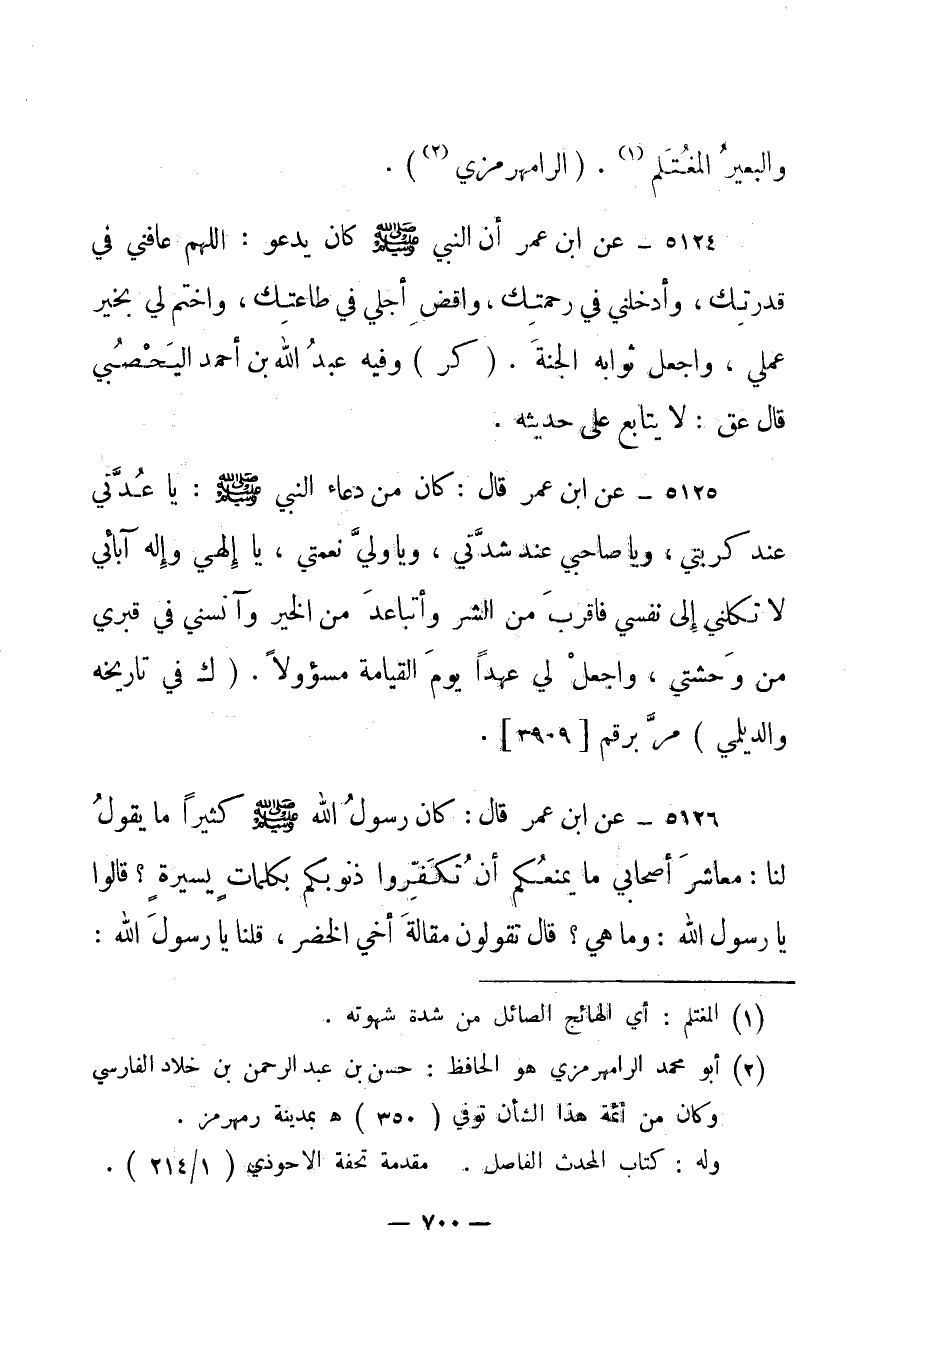 والبعيرُ المغُتَلم (١) . ( الرامهرمزي (٢) ) .
٥١٢٤ ـ عن ابن عمر أن النبي ﷺ كان يدعو : اللهم عافني في
قدرتِك ، وأدخلني في رحمتِك ، واقضِ أجلي في طاعتِك ، واختم لي بخير
عملي ، واجعل ثوابه الجنةَ . ( كر ) وفيه عبدُ الله بن أحمد اليَحْصُبي
قال عق : لا يتابع على حديثه .
٥١٢٥ ـ عن ابن عمر قال : كان من دعاء النبي ﷺ : يا عُدَّتي
عند كربتي ، ويا صاحبي عند شدَّتي ، ويا وليَّ نعمتي ، يا إلهي وإله آبائي
لا تكلني إلى نفسي فاقربَ من الشر وأتباعدَ من الخير وآنسني في قبري
من وَحشتي ، واجعلْ لي عهداً يومَ القيامة مسؤولاً . ( ك في تاريخه
والديلمي ) مرَّ برقم [ ٣٩٠٩ ] .
٥١٢٦ ـ عن ابن عمر قال : كان رسولُ الله ﷺ كثيراً ما يقولُ
لنا : معاشرَ أصحابي ما يمنعُكم أن تُكَفِّروا ذنوبكم بكلماتٍ يسيرةٍ ؟ قالوا
يا رسول الله : وما هي ؟ قال تقولون مقالةَ أخي الخضر ، قلنا يا رسولَ الله :
(١) المغتلم : أي الهائج الصائل من شدة شهوته .
(٢) أبو محمد الرامهرمزي هو الحافظ : حسن بن عبد الرحمن بن خلاد الفارسي
وكان من أئمة هذا الشأن توفي ( ٣٥٠ ) ه بمدينة رمهرمز .
وله : كتاب المحدث الفاصل . مقدمة تحفة الاحوذي ( ٢١٤/١ ) .
— ٧٠٠ —